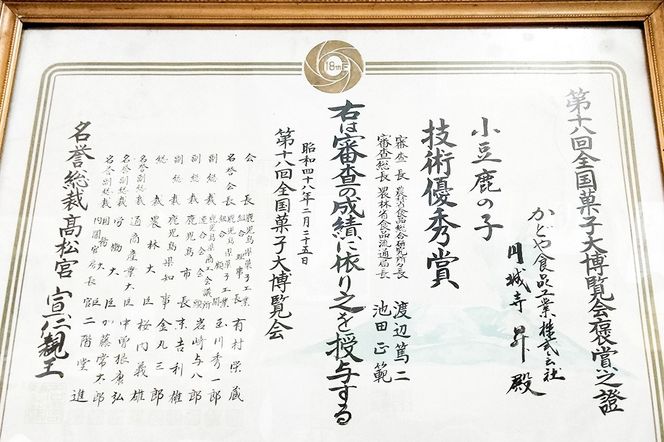 18th
第十八回全国菓子大博覧会褒賞之證
かどや食品工業株式会社
円城寺昇殿
小豆鹿の子
技術優秀賞
審査長 農林省食品総合研究所長 渡辺篤二
審査総長 農林省食品流通局長 池田正範
右は審査の成績に依り之を授与する
昭和四十八年二月二十五日
第十八回全国菓子大博覧会
会長 有村栄蔵
名誉会長 玉川秀一郎
副総裁 岩崎与八郎
副総裁 鹿児島市長 末吉利雄
副総裁 鹿児島県知事 金丸三郎
総裁 農林大臣 桜内義雄
名誉副総裁 通商産業大臣 中曽根康弘
名誉副総裁 行物大臣 加藤常太郎
名誉副総裁 内閣官房長官 二階堂進
名誉総裁高松宮宣仁親王